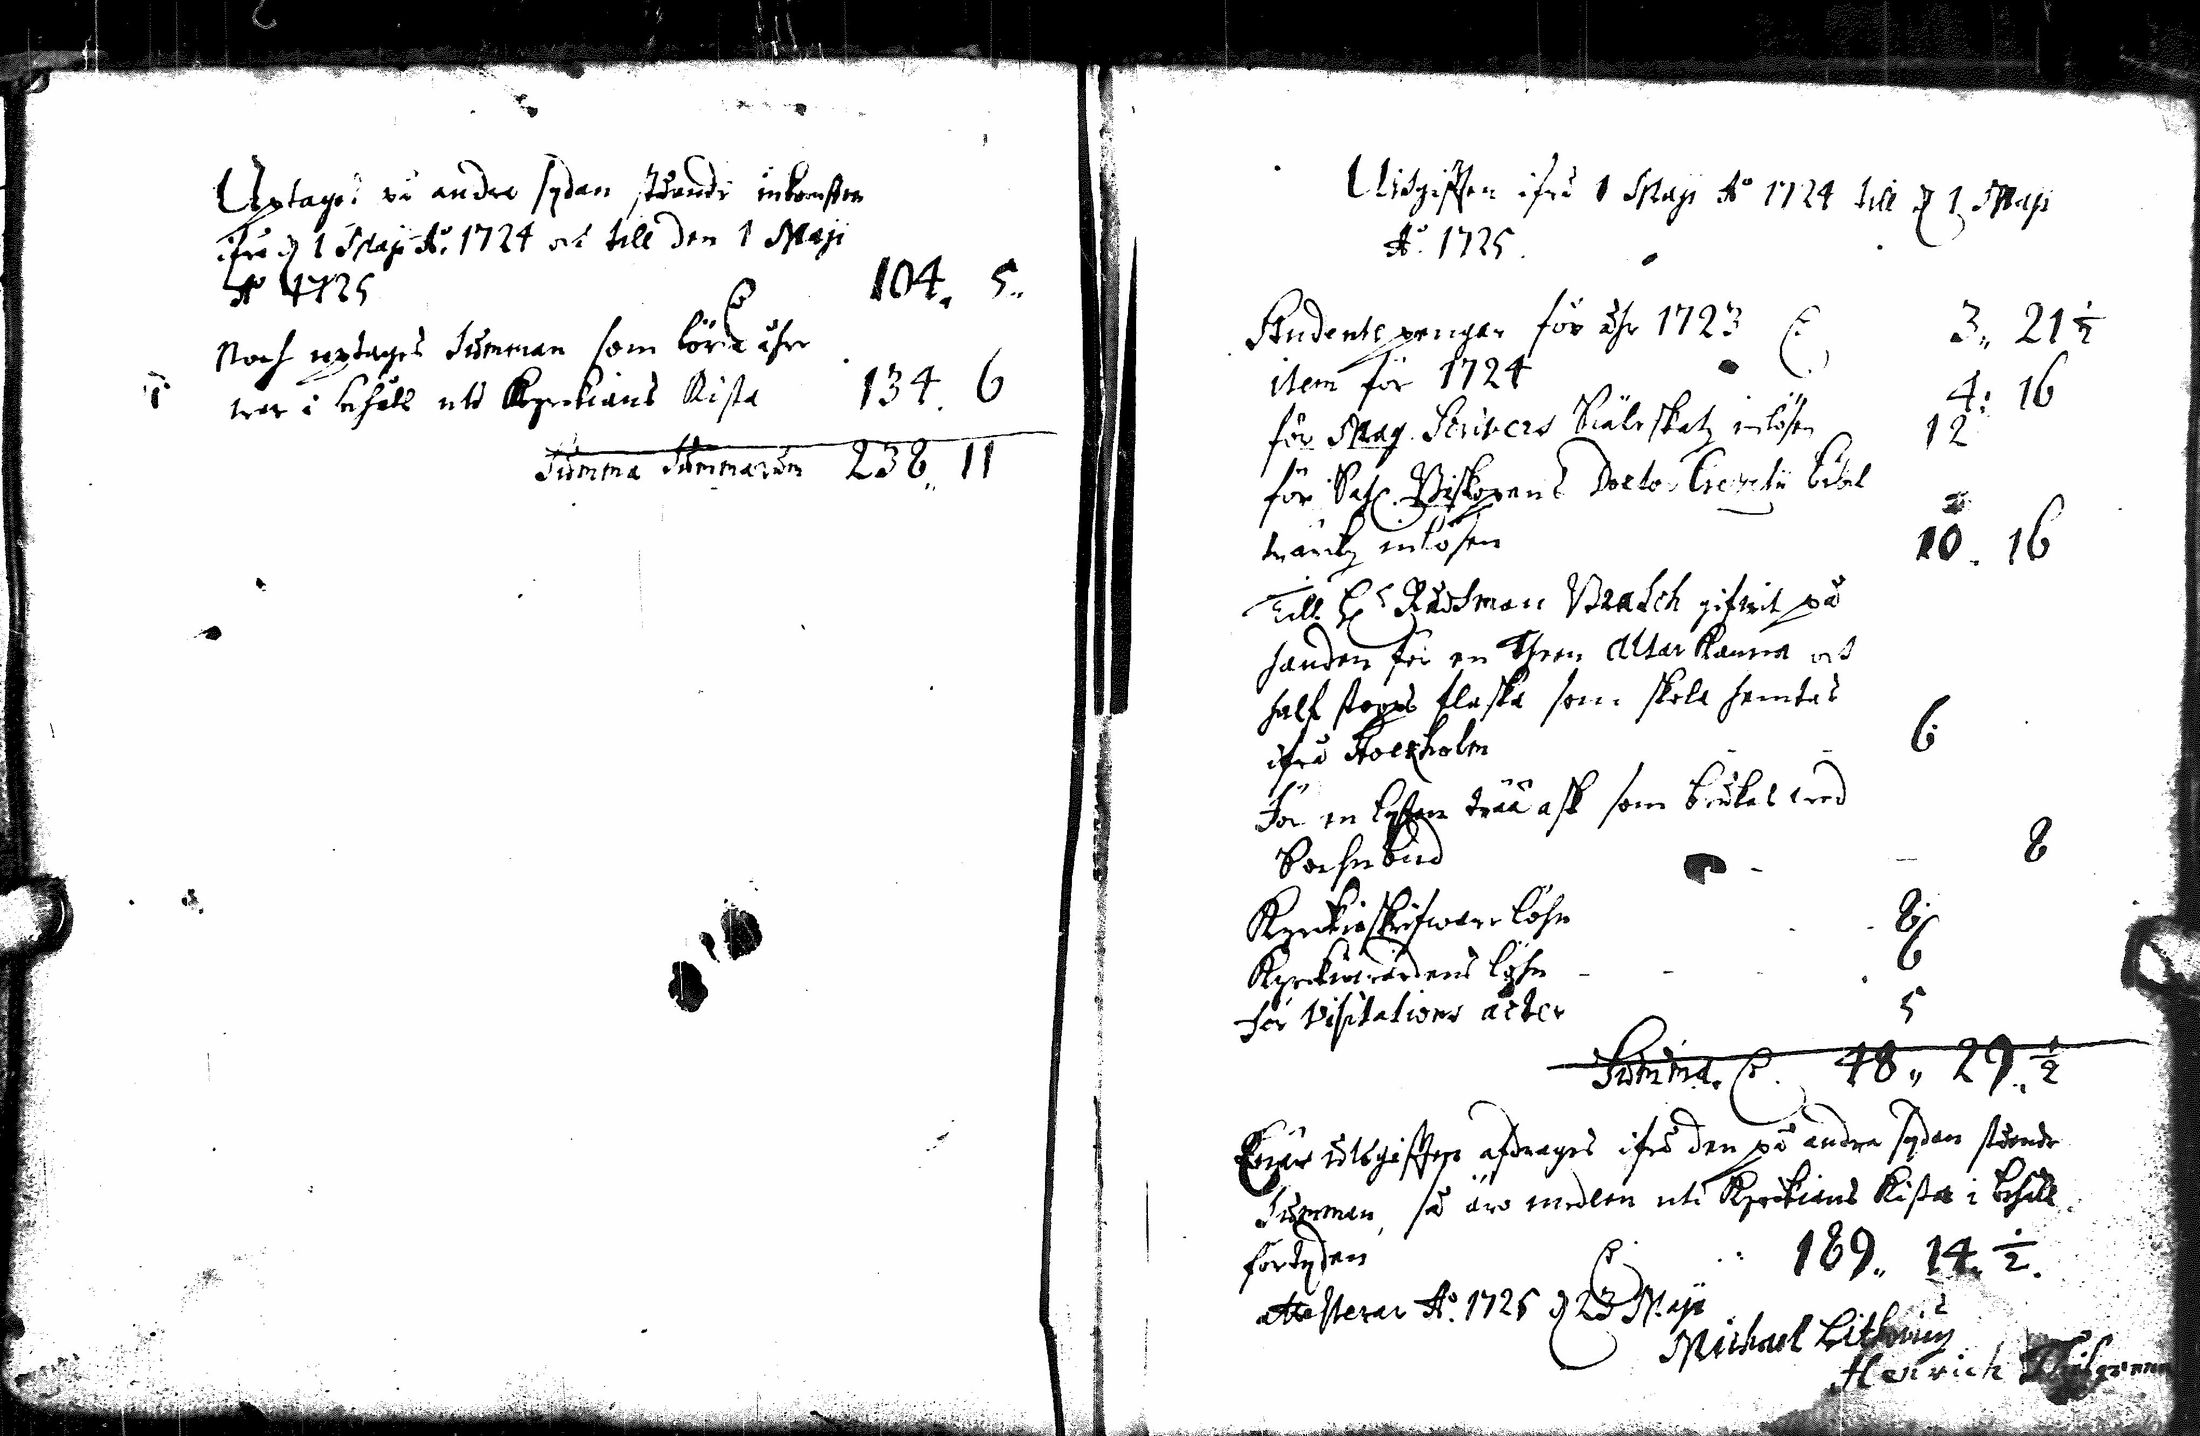 Uptages på andra sydan stående inkomsten
ifrå d 1 Maji Ao. 1724 och till den 1 Maji
Ao 1725 104. 5.
Noch uptages Summan som förra åhre
war i behåll uti Kyrckians Kista 134. 6
Summa Summarum 238,, 11
Utgifften ifrå 1 Maji Ao 1724 till d 1 Maji
Ao. 1725.
Studente pengar för åhr 1723 3,, 21 1/2
item för 1724 4: 16
för Mag. Scrivers Siäleskatz inlösen 12
för Sal. Biskopens Doctor
inlösen 10. 16
Till Hr Rådman Brasch gifwit på
handen för en Altar Kanna och
half stoops flaska som skola hemtas
ifrå Stockholm 6
För en trää ask som brukas wed
Sochnbud 8
Kyrckioskrifware löhn 8
Kyrckiowärdens löhn 6
För Visitations acter 5
Summa. 48,, 29,, 1/2
utgifften afdrages ifrå den på andra sydan stående
Summan, så äro medlen uti Kyrckians Kista i behåll
för tyden 189,, 14. 1/2.
attesterar Ao. 1725 d 23 Maji
Michael Lithovius
Henrich